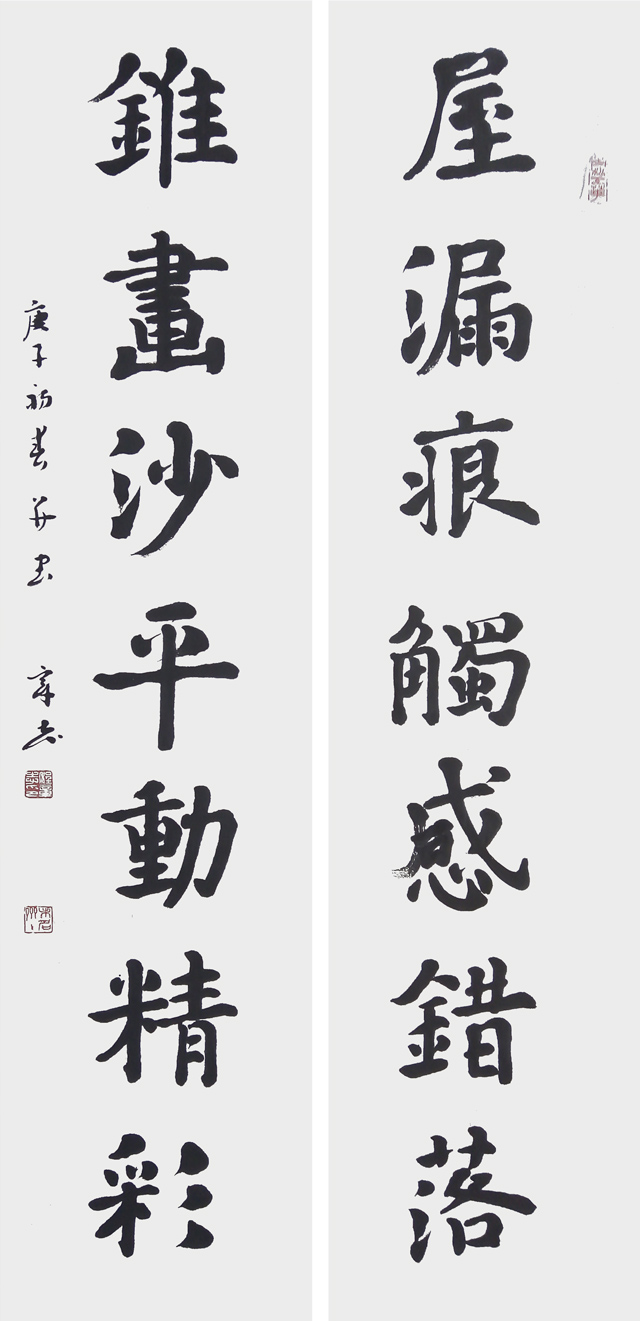 屋漏痕觸感錯落
錐畫沙平動精彩
庚子初春并书